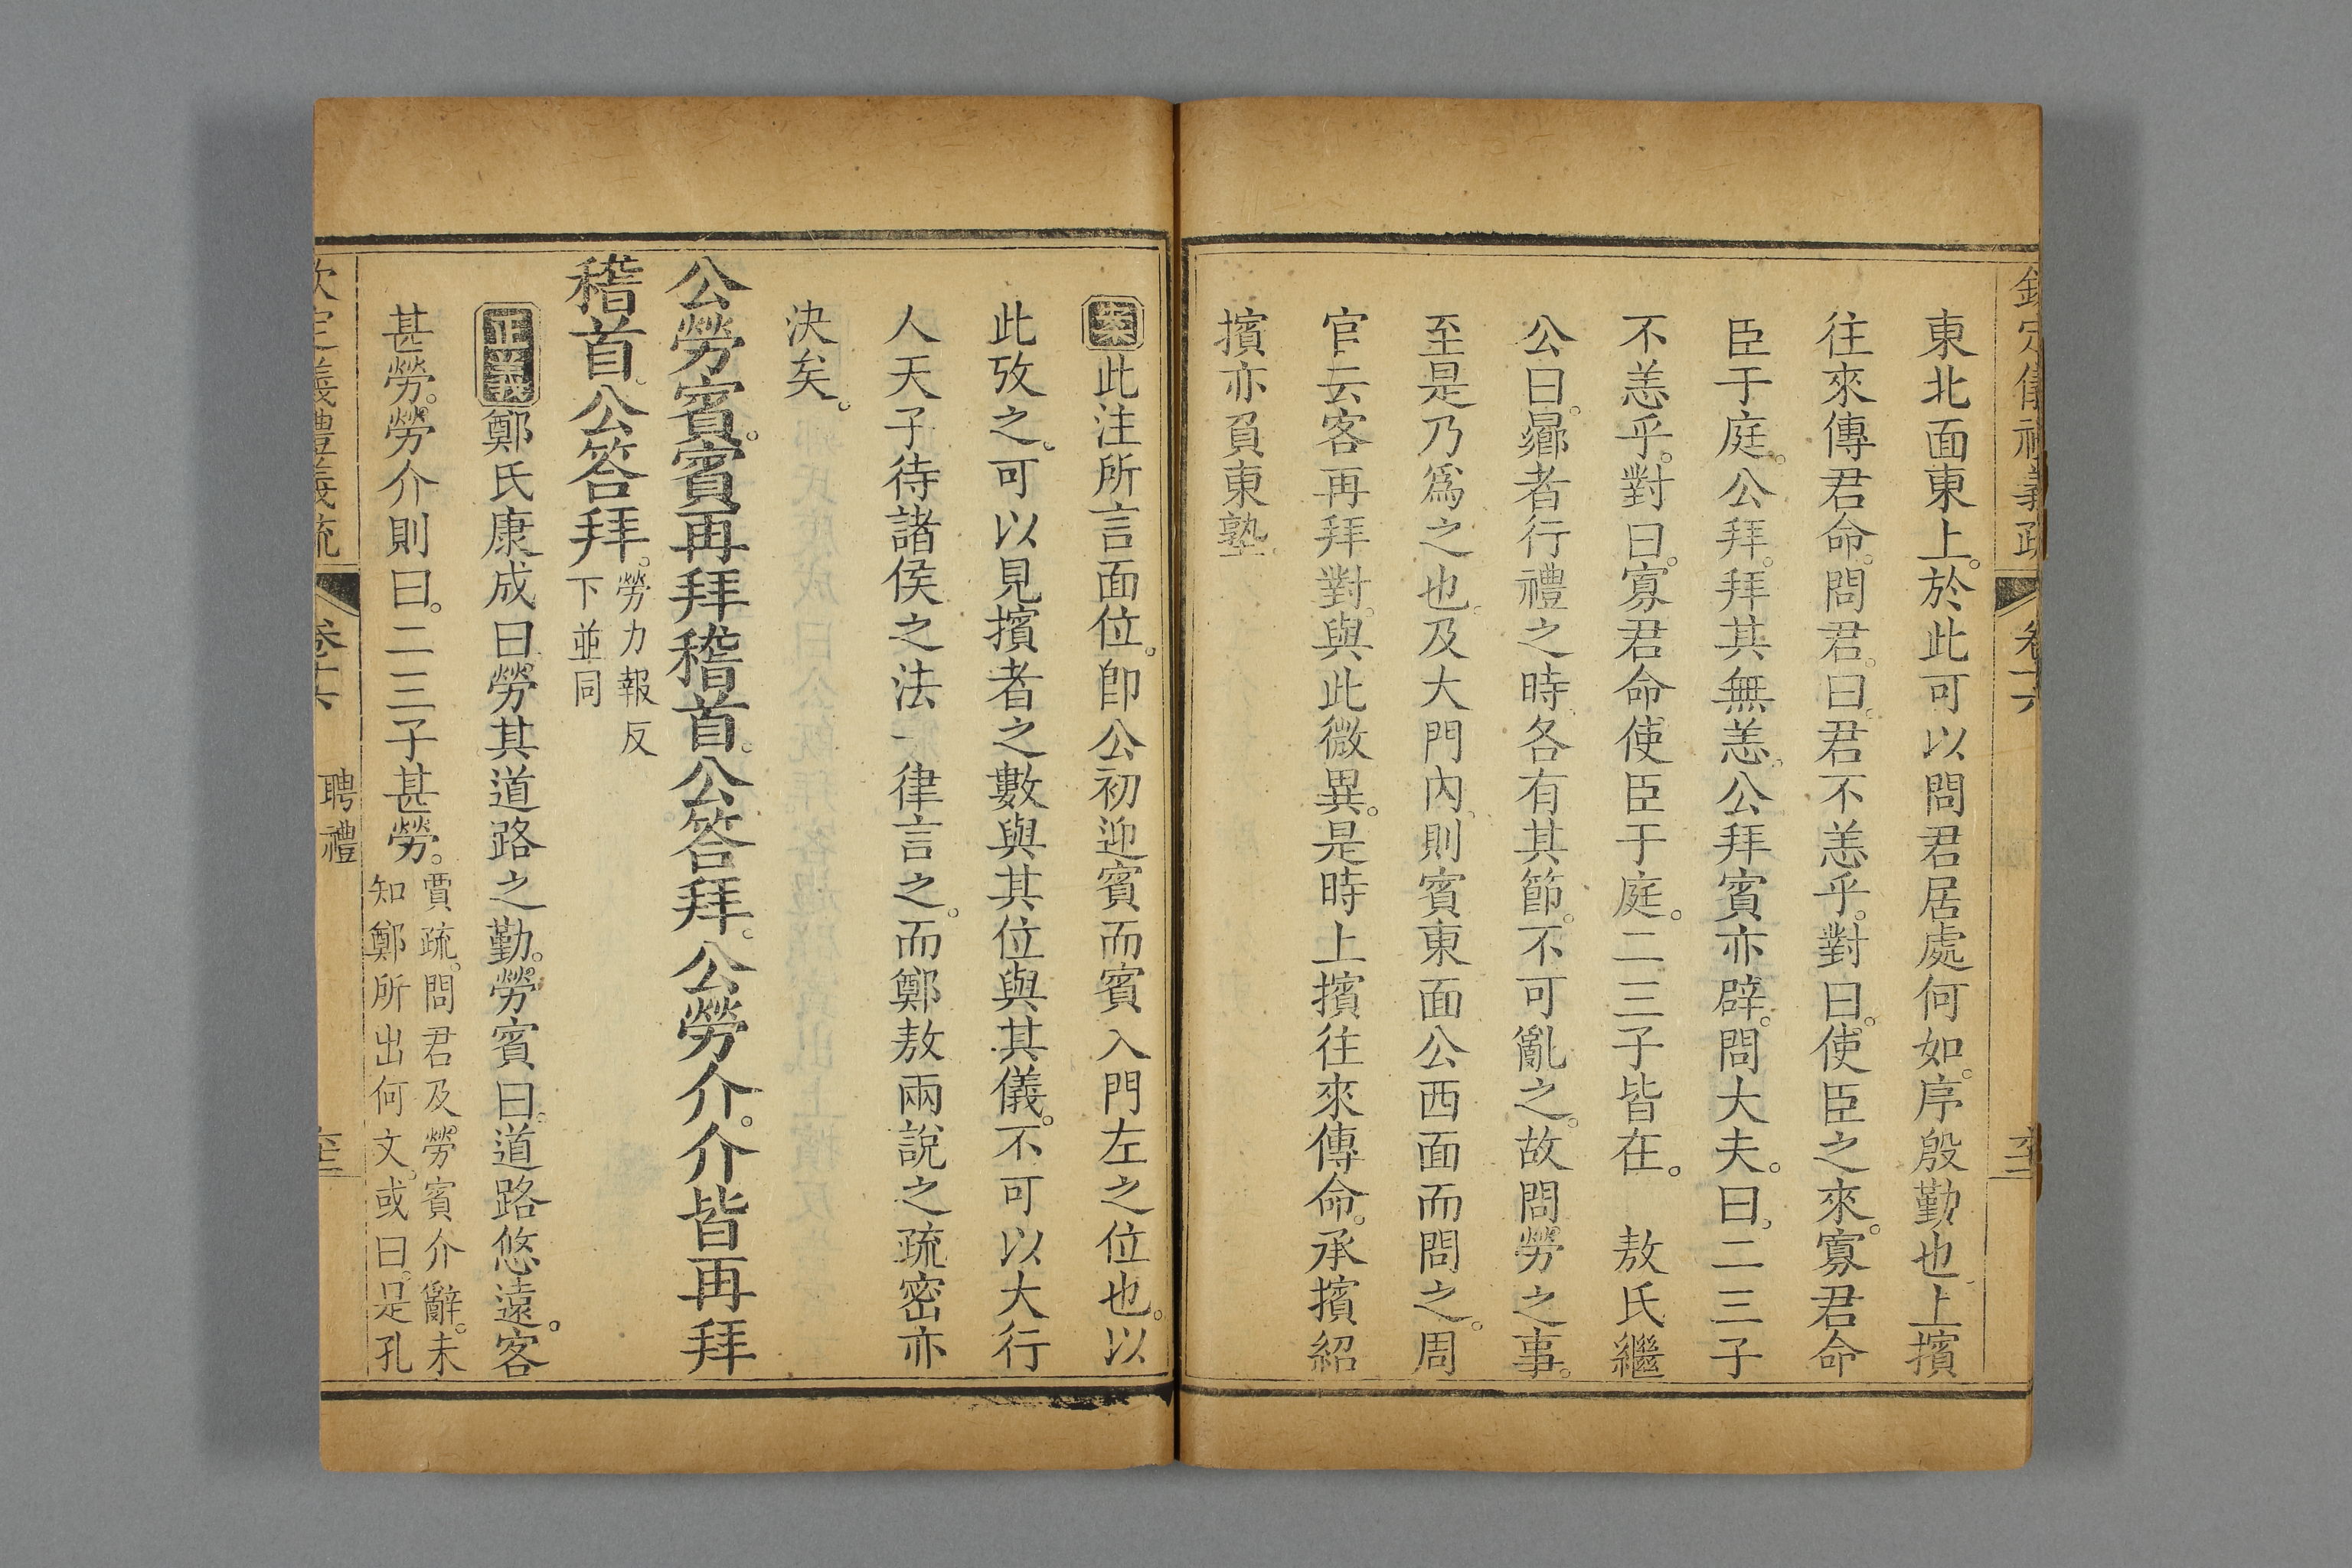 欽定儀禮義疏 卷十六
東北面東上。於此可以問君居處何如。序殷勤也上擯
往來傳君命。問君。曰。君不恙乎。對曰。使臣之來。寡君命
臣于庭。公拜。拜其無恙。公拜賓亦辟。問大夫。曰。二三子
不恙乎。對曰。寡君命使臣于庭。二三子皆在。 敖氏繼
公曰。曏者行禮之時各有其節。不可亂之。故問勞之事。
至是乃爲之也。及大門內。則賓東面公西面而問之。周
官云客再拜對。與此微異。是時上擯往來傳命。承擯紹
擯亦負東塾
案此注所言面位。卽公初迎賓而賓入門左之位也。以
此攷之。可以見擯者之數與其位與其儀。不可以大行
人天子待諸侯之法一律言之。而鄭敖兩說之疏密亦
決矣。
公勞賓。賓再拜稽首。公答拜。公勞介。介皆再拜
稽首。公答拜。勞力報反
下並同
正義鄭氏康成曰勞其道路之勤。勞賓曰。道路悠遠。客
甚勞。勞介則曰。二三子甚勞。賈疏。問君及勞賓介辭。未
知鄭所出何文。或曰。是孔
欽定儀禮義疏 卷十六 聘禮